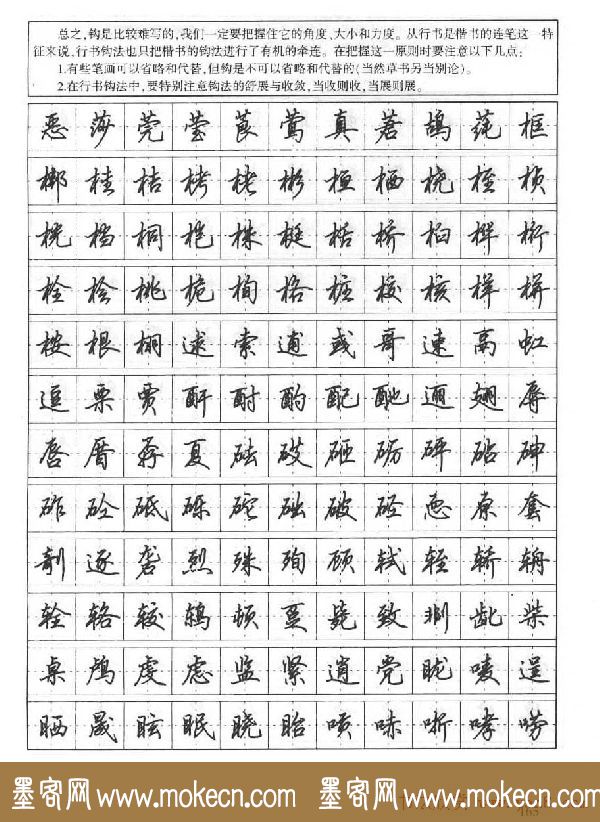 总之,钩是比较难写的,我们一定要把握住它的角度、大小和力度。从行书是楷书的连笔这一特
征来说,行书钩法也只把楷书的钩法进行了有机的牵连。在把握这一原则时要注意以下几点:
1.有些笔画可以省略和代替,但钩是不可以省略和代替的(当然草书另当别论)。
2.在行书钩法中,要特别注意钩法的舒展与收敛,当收则收,当展则展。
恶 莎 莞 莹 莨 莺 真 著 鸪 莼 框
梆 桂 桔 栲 栳 彬 桓 栖 桡 桎 桢
桄 档 桐 桤 株 梃 栝 桥 桕 桦 桁
栓 桧 桃 桅 栒 格 桩 校 核 样 栟
桉 根 栩 逑 索 逋 彧 哥 速 鬲 虹
逗 栗 贾 酐 酎 酌 配 酏 逦 翅 辱
唇 厝 孬 夏 砝 砹 砸 砺 砰 砧 砷
砟 砼 砥 砾 砣 础 破 砼 恧 原 套
剞 逐 砻 烈 殊 殉 顾 轼 轾 轿 辀
辁 辂 较 鸫 顿 趸 毙 致 剕 龀 柴
桌 鸬 虔 虑 监 紧 逍 党 眬 唛 逞
晒 晟 眩 眠 晓 眙 唝 哧 哳 哮 唠
墨客网 www.mokecn.com 墨客网 www.mokecn.com
165